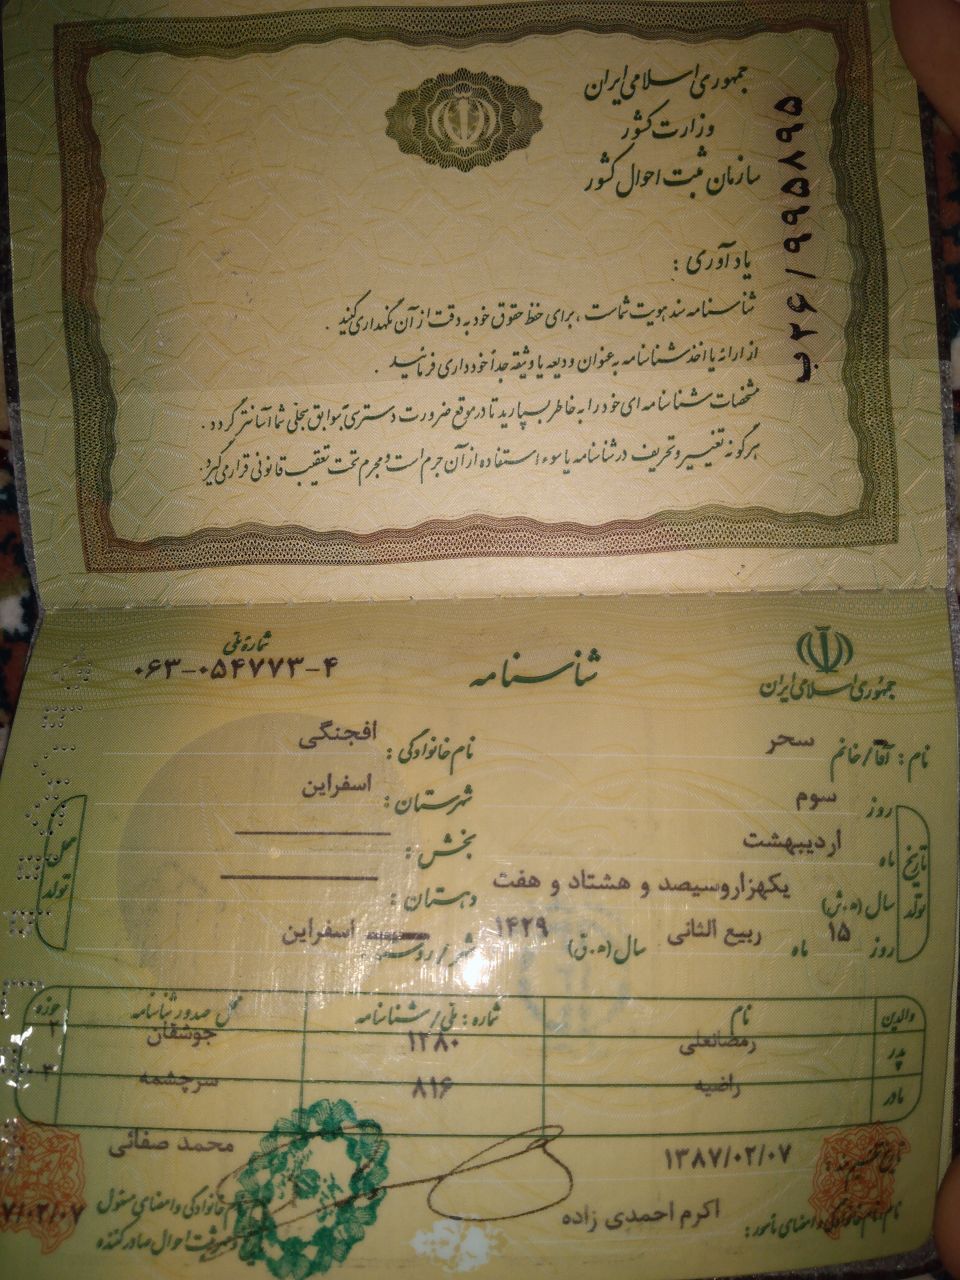 جمهوری اسلامی ایران
وزارت کشور
سازمان ثبت احوال کشور
ب۲۶/۹۹۵۸۹۵
یادآوری :
شناسنامه سند هویت شماست ، برای حفظ حقوق خود به دقت از آن نگهداری کنید .
از ارائه یا اخذ شناسنامه به عنوان ودیعه یا وثیقه جداً خودداری فرمائید .
مشخصات شناسنامه ای خود را به خاطر بسپارید تا در موقع ضرورت دسترسی به سوابق سجلی شما آسانتر گردد .
هرگونه تغییر و تحریف در شناسنامه یا سوء استفاده از آن جرم است و مجرم تحت تعقیب قانونی قرار می گیرد .
جمهوری اسلامی ایران
شناسنامه
شماره ملی
۰۶۳-۰۵۴۷۷۳-۴
نام : آقا/خانم سحر نام خانوادگی : افجنگی
تاریخ تولد
روز سوم
ماه اردیبهشت
سال (ه.ش) یکهزاروسیصد و هشتاد و هفت
روز ۱۵ ماه ربیع الثانی سال (ه.ق) ۱۴۲۹
محل تولد
شهرستان : اسفراین
بخش :
دهستان :
شهر / روستا : اسفراین
والدین نام شماره : ملی/شناسنامه محل صدور شناسنامه حوزه
پدر رمضانعلی ۱۲۸۰ جوشقان ۲
مادر راضیه ۸۱۶ سرچشمه ۳
تاریخ تنظیم سند : ۱۳۸۷/۰۲/۰۷
نام، نام خانوادگی و امضای مأمور : اکرم احمدی زاده
محمد صفائی
نام خانوادگی و امضای مسئول
ثبت احوال صادرکننده
۷/۰۲/۰۷